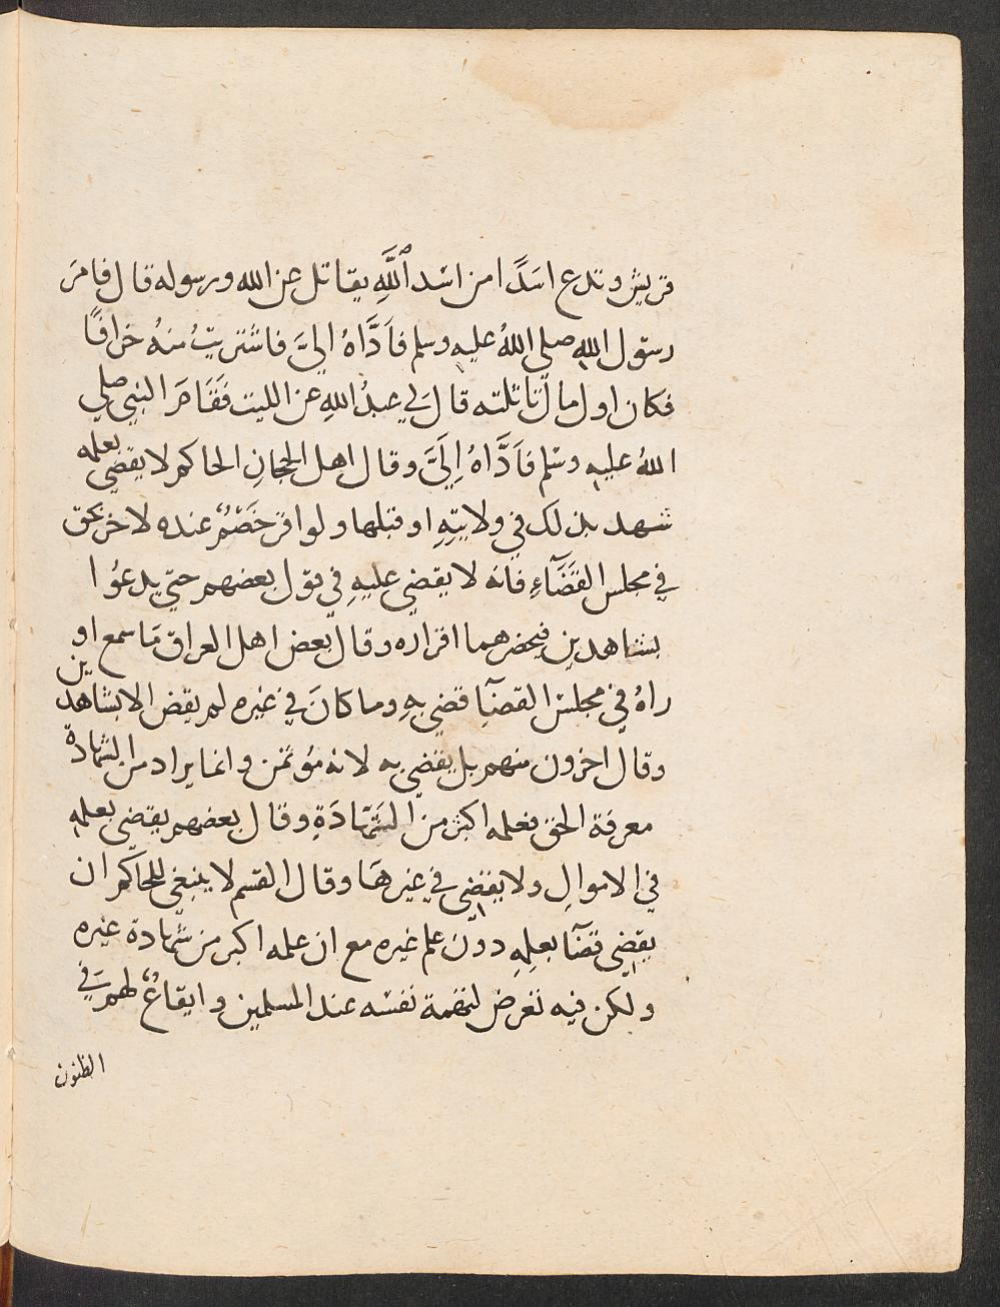 قريش وتدع اسَدًا من اسْد اللَّهِ يقاتل عن الله ورسوله قال فامرَ
رسول اللهِ صلي اللهُ عليهِ وسلم فاَدَّاهُ اليَّ فاشتريتُ منهُ خرافًا
فكان اول مال تاثلته قالَ لِي عبدُ اللهِ عن الليث فَقَامَ النبي صلي
اللهُ عليهِ وسَلم فاَدَّاهُ اِلَيَّ وقال اهل الحجازِ الحاكم لا يقضي بعلمه
شهد بذلك في ولايتِهِ او قبلها ولو اقر خَصْمٌ عنده لاخر بحق
في مجلس القَضَآءِ فانه لا يقضي عليهِ في قول بعضهم حتي يدعُوا
بشاهدين فيحضرهما اقراره وقال بعض اهل العراق مَا سمع او
راهُ في مجلس القضآءِ قضي بهِ وما كانَ في غيره لم يقض الا بشاهدين
وقال اخرون منهم بل يقضي به لانه مُؤتمَن وانما يراد من الشهادة
معرفة الحق فعلمه اكثر من الشَهَادَةِ وقال بعضهم يقضي بعلمهِ
في الاموالِ ولا يقضي في غيرهَا وقال القسم لا ينبغي للحاكم ان
يقضِي قضَآءً بعلمِهِ دون علم غيره مع ان علمه اكبر من شهادة غيره
ولكن فيه تعرض لتهمة نفسْه عند المسلمين وايقاعٌ لهم في
الظنون